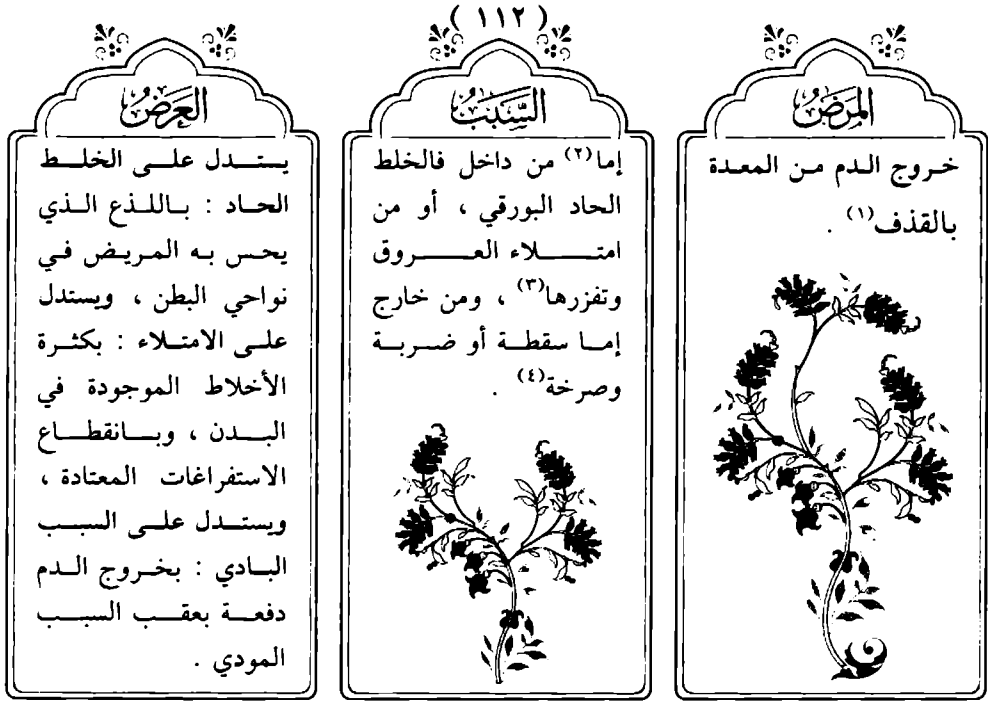 ( ١١٢ )
المَرَضُ
خروج الدم من المعدة
بالقذف(١) .
السَّبَبُ
إما(٢) من داخل فالخلط
الحاد البورقي ، أو من
امتلاء العروق
وتفزرها(٣) ، ومن خارج
إما سقطة أو ضربة
وصرخة(٤) .
العَرَضُ
يستدل على الخلط
الحاد : باللذع الذي
يحس به المريض في
نواحي البطن ، ويستدل
على الامتلاء : بكثرة
الأخلاط الموجودة في
البدن ، وبانقطاع
الاستفراغات المعتادة ،
ويستدل على السبب
البادي : بخروج الدم
دفعة بعقب السبب
المودي .